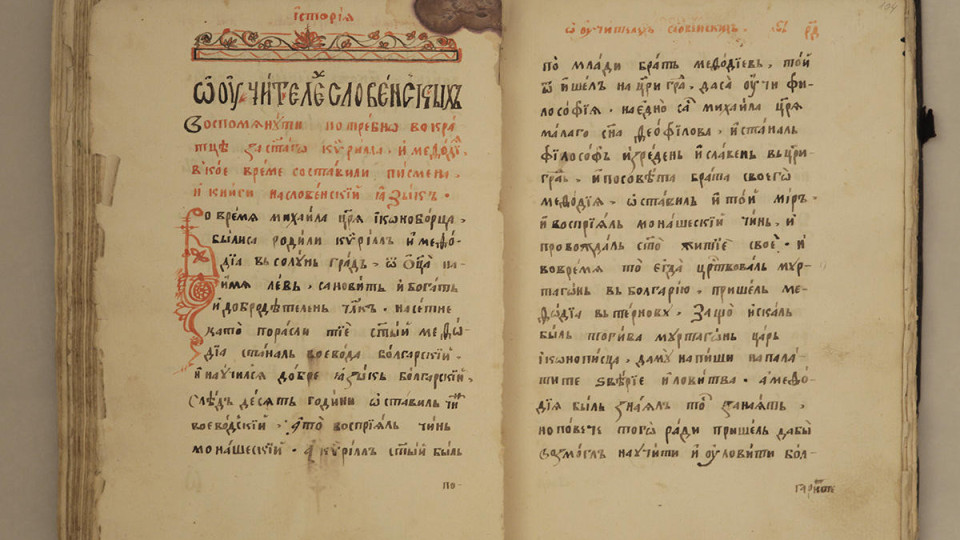 їсторїѧ
Ѡ ОУЧИ́ТЕЛЕ СЛОВЕ́НСКЫХЪ
Воспомѧнꙋти потребно вокра́
тцѣ за ст҃аго кѷрилла, и҆ меѳо́дїа
в кое време составили писмена,
и҆ книги на слове́нскїй ꙗ҆зы́къ.
о вре́мѧ михаи́ла цр҃ѧ і҆коноборца,
бы́лиса роди́ли кѷри́ллъ и҆ меѳо́-
дїа въ солꙋнь гра́дъ, ѿ ѻ҆ц҃а на-
и́мѧ ле́въ, санови́тъ и҆ бога́тъ
и҆ добродѣ́теленъ чл҃къ. насе́тне
като пора́сли тїе ст҃ы́й меѳѡ́-
дїа ста́налъ воево́да бо́лгарскїй.
и҆ наꙋчи́лсѧ до́бре ꙗ҆зы́къ бо́лгарскїй,
слѣ́дъ де́сѧть годи́ни ѡ҆ста́вилъ чи́нъ
воево́дскїй, что воспрїѧ́лъ чи́нъ
мона́шескїй. а҆ кѷри́ллъ ст҃ы́й бы́лъ
по-
ѡ҆ ѹ҆чителѧхъ словенскихъ.
104
по мла́ди бра́тъ меѳо́дїевъ, то́й
ѿи́шелъ на цр҃и гра́, да сѧ ѹ҆́чи фи-
лосо́фїѧ. на є҆дно̀ са́ михаи́ла цр҃ѧ
ма́лаго сн҃а ѳео́филова, и҆ ста́налъ
фїло́софъ и҆зре́денъ и҆ сла́венъ въ цр҃и-
гра́, и҆ посовѣ́та бра́та своегѡ̀
меѳо́дїа, ѡ҆ста́вилъ и҆ то́й ми́ръ,
и҆ воспрїѧ́лъ мона́шескїй чи́нъ, и҆
провожда́лъ ст҃о̀ житїѐ своѐ. и҆
вовре́мѧ то є҆гда̀ цр҃ствовалъ мꙋр-
тага́нъ въ болга́рїю, прише́лъ ме-
ѳѡ́дїа въ те́рновъ. защо̀ и҆ска́лъ
бы́лъ тоги́ва мꙋртага́нъ ца́рь
і҆конопи́сца, да мꙋ̀ напи́ши на пала́-
тите ѕвѣ́рїе и҆ лови́тва. а҆ меѳо́-
дїа бы́лъ зна́ѧлъ то́ зана́ѧтъ,
но по́вече тогѡ̀ ра́ди прише́лъ дабы̀
возмо́глъ наꙋчи́ти и҆ ѹ҆лови́ти бол-
гари́те